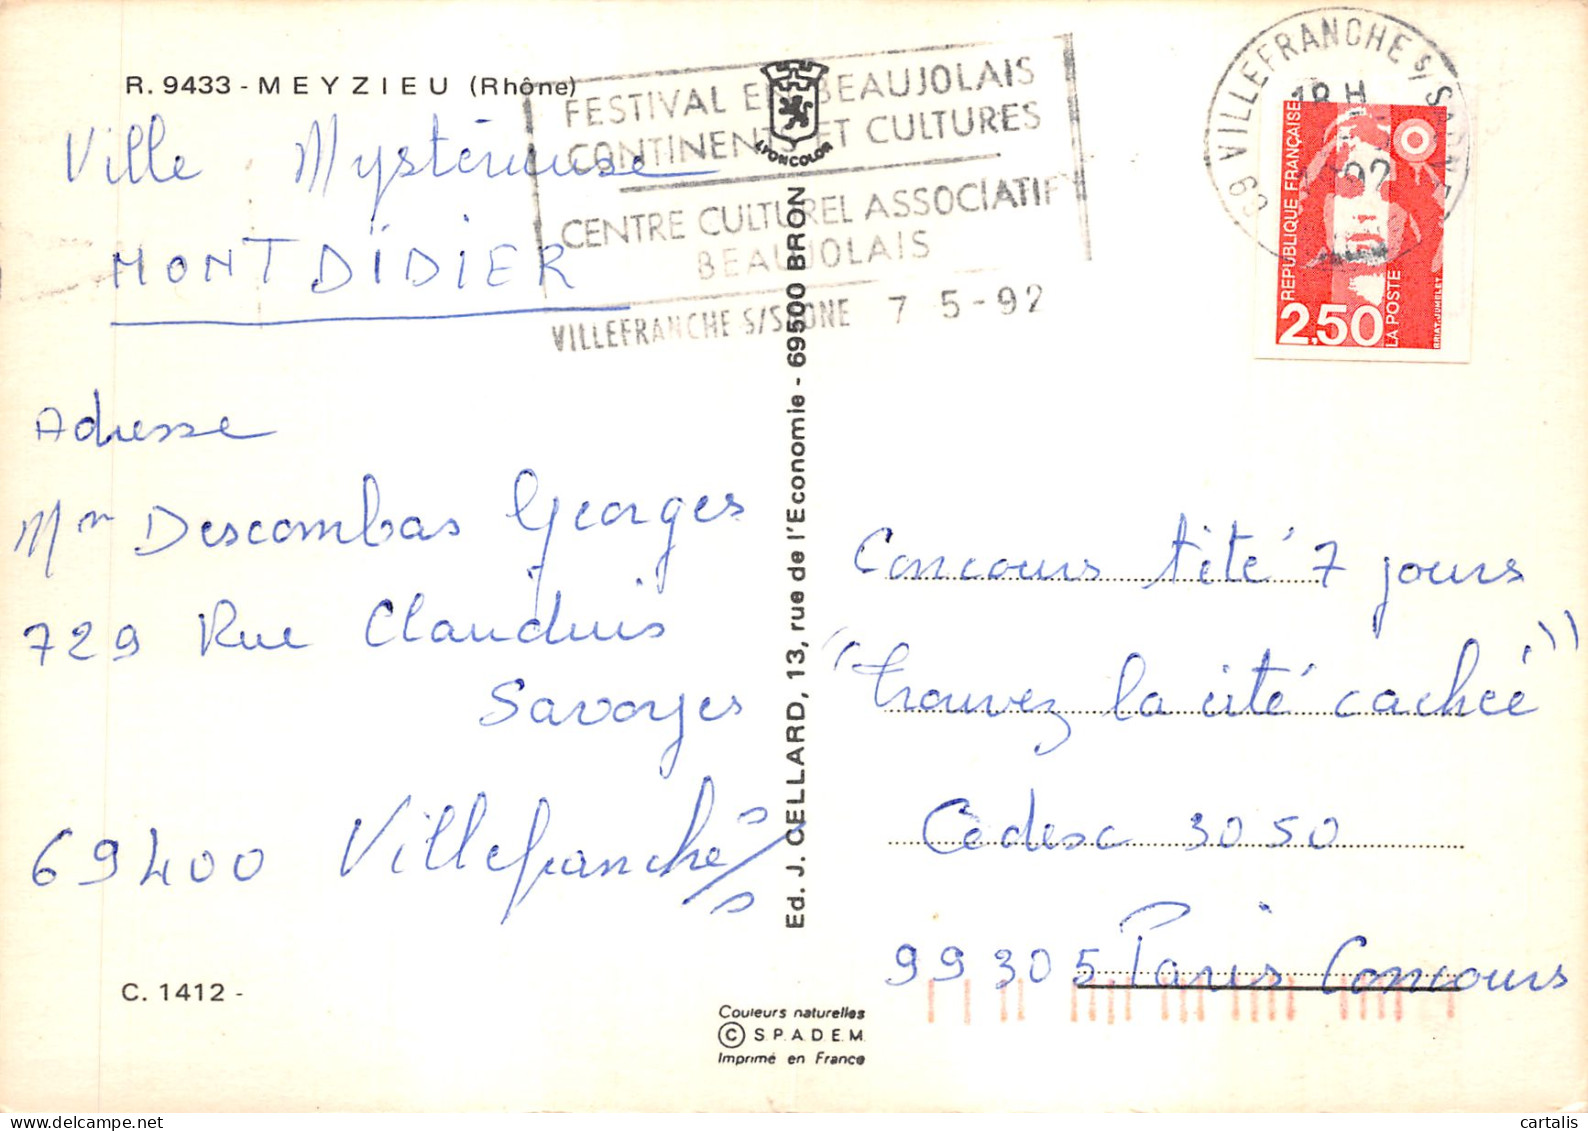 R. 9433 - MEYZIEU (Rhône)
Ville Mystérieuse
MONTDIDIER
Adresse
Mr Descombas Georges
729 Rue Claudius
Savoyes
69400 Villefranche s/s
C. 1412 -
FESTIVAL EN BEAUJOLAIS
CONTINENTS ET CULTURES
CENTRE CULTUREL ASSOCIATIF
BEAUJOLAIS
VILLEFRANCHE S/SAONE 7 5-92
LYONCOLOR
Ed. J. CELLARD, 13, rue de l'Economie - 69500 BRON
Couleurs naturelles
© S.P.A.D.E.M.
Imprimé en France
69 VILLEFRANCHE S/SAONE
18 H
92
REPUBLIQUE FRANÇAISE
2,50
LA POSTE
BRIAT.JUMELET
Concours tété 7 jours
"trouvez la cité cachée"
Cedesc 3050
99305 Paris Concours
cartalis